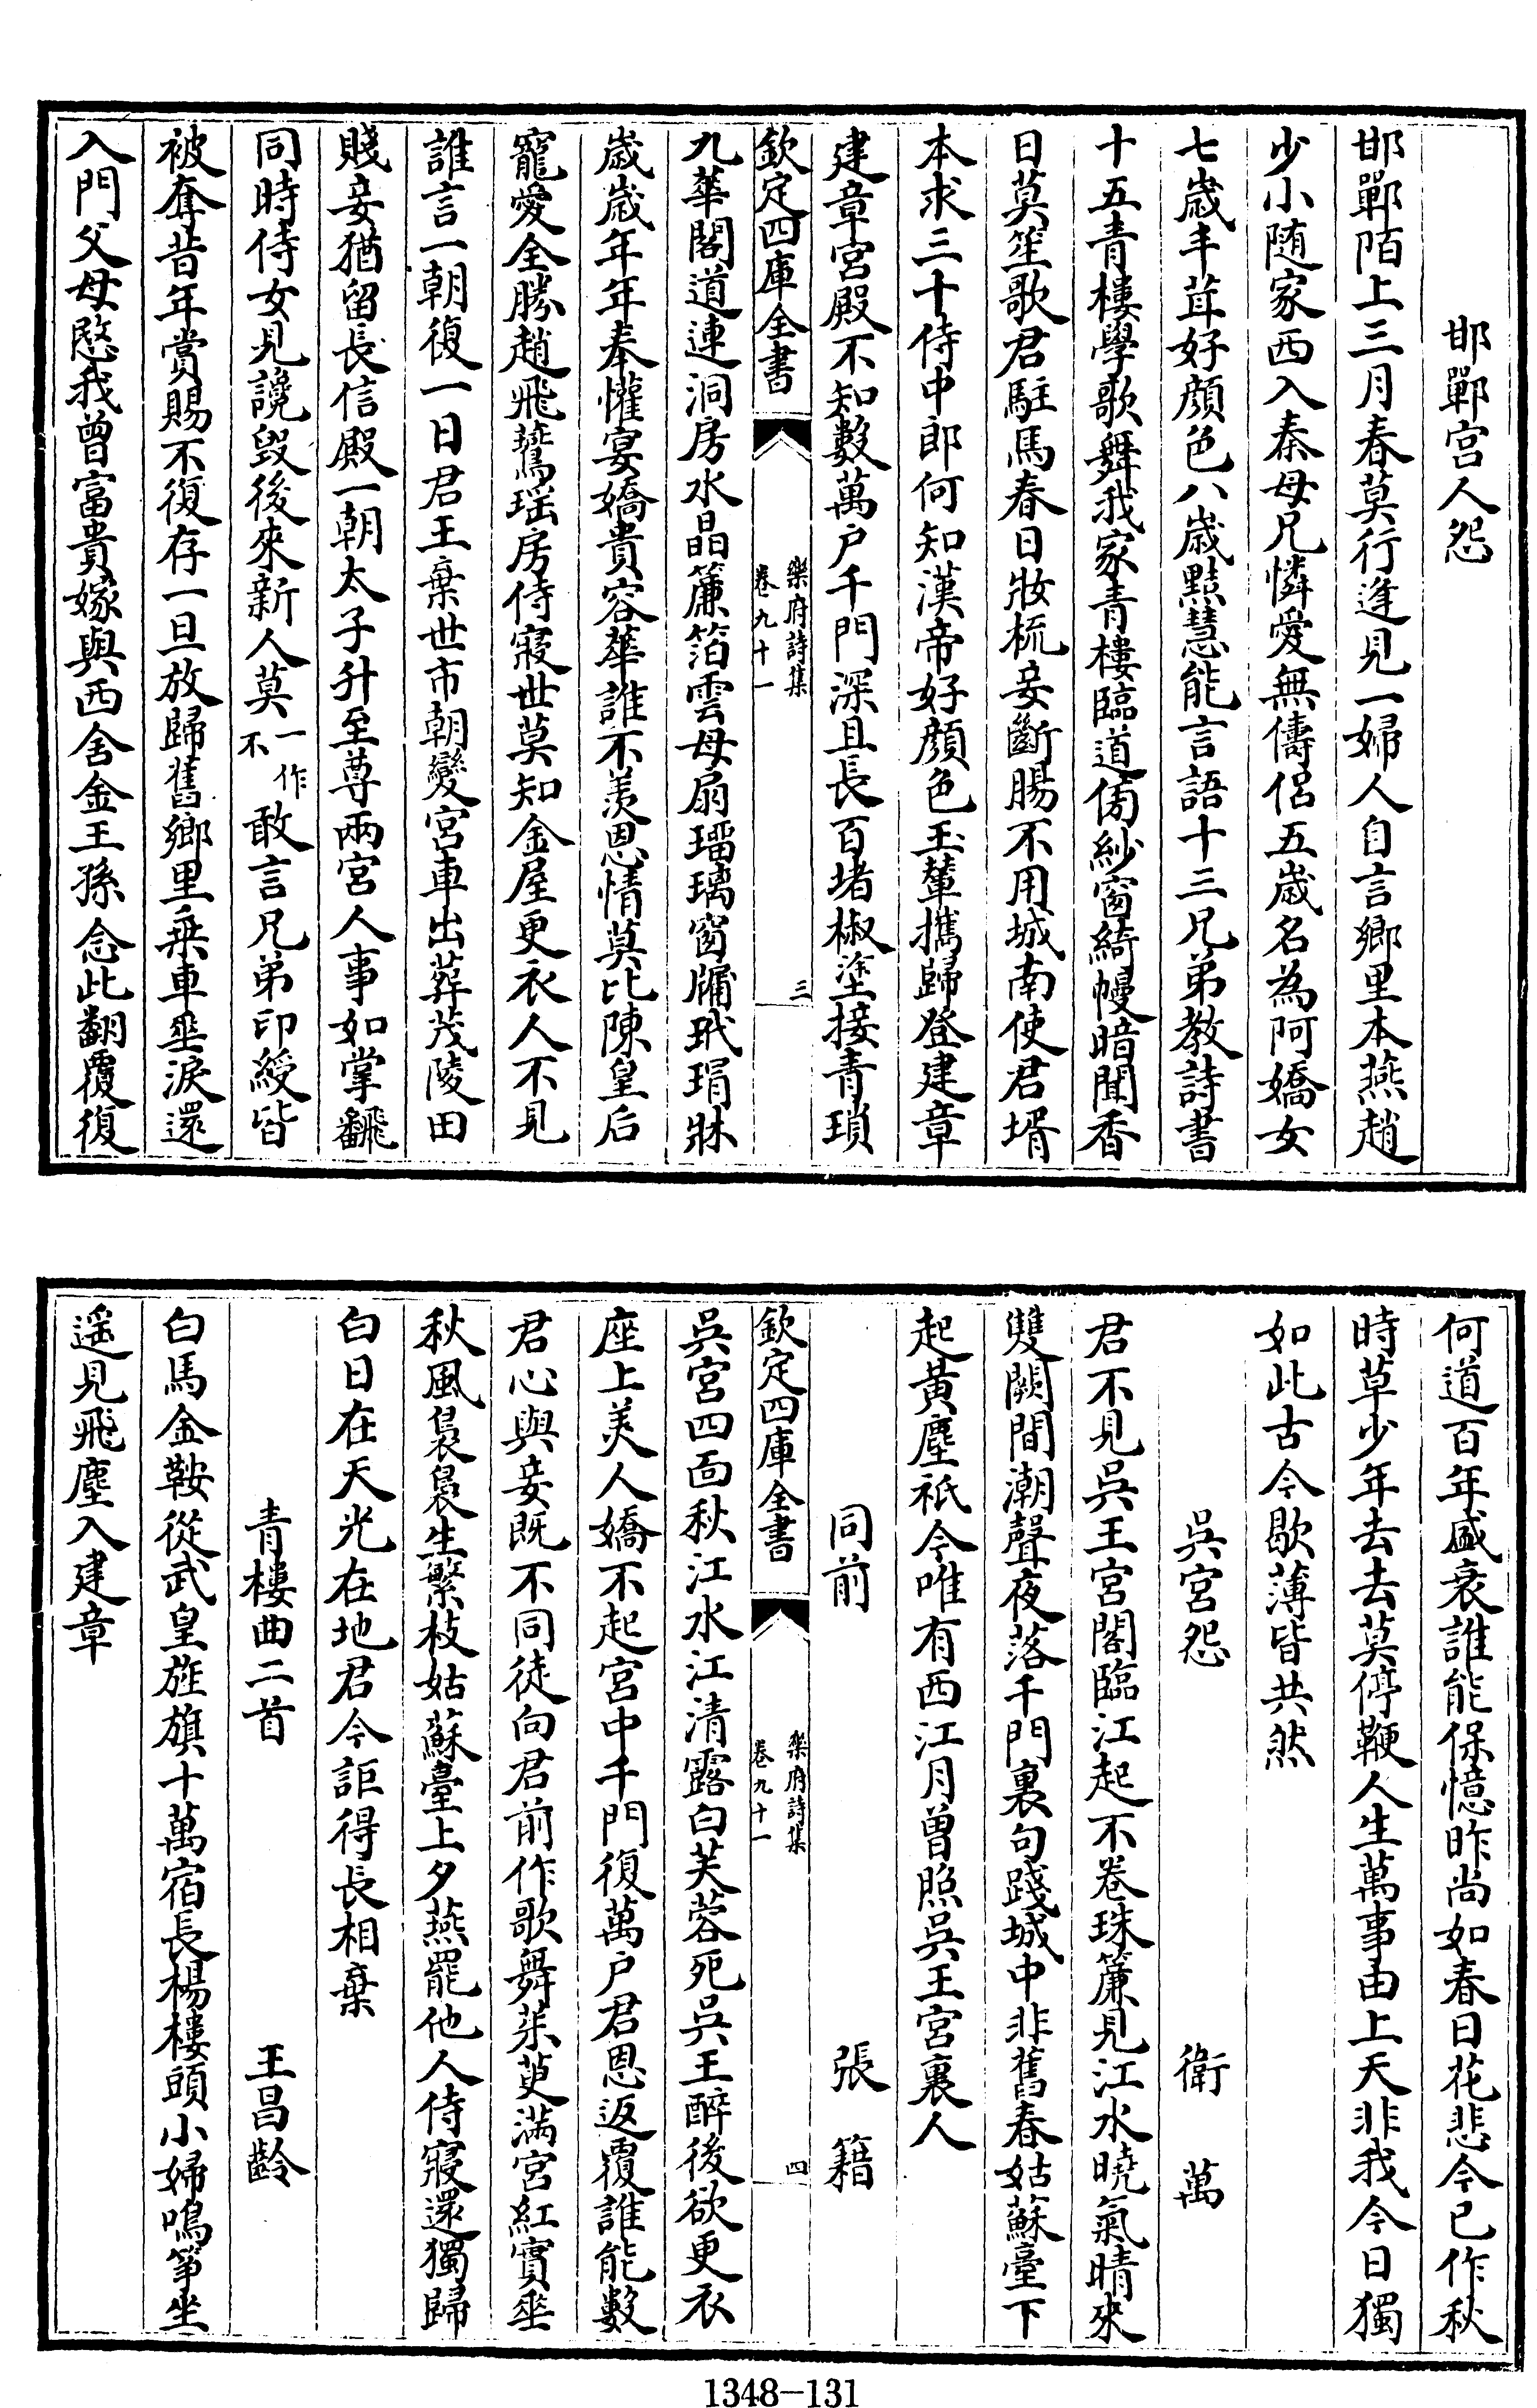 邯鄲宫人怨
邯鄲陌上三月春莫行逢見一婦人自言鄉里本燕趙
少小随家西入秦母兄憐愛無儔侣五歲名為阿嬌女
七歲丰茸好顔色八歲黠慧能言語十三兄弟教詩書
十五青樓學歌舞我家青樓臨道傍紗窗綺幔暗聞香
日莫笙歌君駐馬春日妝梳妾斷腸不用城南使君壻
本求三十侍中郎何知漢帝好顔色玉輦攜歸登建章
建章宮殿不知數萬户千門深且長百堵椒塗接青瑣
欽定四庫全書
樂府詩集
卷九十一
三
九華閣道連洞房水晶簾箔雲母扇瑠璃窗牖玳瑁牀
歲歲年年奉懽宴嬌貴容華誰不羨恩情莫比陳皇后
寵愛全勝趙飛鷰瑶房侍寢世莫知金屋更衣人不見
誰言一朝復一日君王棄世市朝變宮車出葬茂陵田
賤妾猶留長信殿一朝太子升至尊兩宮人事如掌飜
同時侍女見讒毁後來新人莫一作不敢言兄弟印綬皆
被奪昔年賞賜不復存一旦放歸舊鄉里乗車垂淚還
入門父母愍我曾富貴嫁與西舍金王孫念此翻覆復
何道百年盛衰誰能保憶昨尚如春日花悲今已作秋
時草少年去去莫停鞭人生萬事由上天非我今日獨
如此古今歇薄皆共然
吳宮怨 衛萬
君不見吳王宮閣臨江起不卷珠簾見江水曉氣晴來
雙闕間潮聲夜落千門裏句踐城中非舊春姑蘇臺下
起黃塵祇今唯有西江月曽照吳王宮裏人
同前 張籍
欽定四庫全書
樂府詩集
卷九十一
四
吳宮四面秋江水江清露白芙蓉死吳王醉後欲更衣
座上美人嬌不起宮中千門復萬户君恩返覆誰能數
君心與妾既不同徒向君前作歌舞茱萸滿宮紅實垂
秋風裊裊生繁枝姑蘇臺上夕燕罷他人侍寢還獨歸
白日在天光在地君今詎得長相棄
青樓曲二首 王昌齡
白馬金鞍從武皇旌旗十萬宿長楊樓頭小婦鳴筝坐
遥見飛塵入建章
1348-131